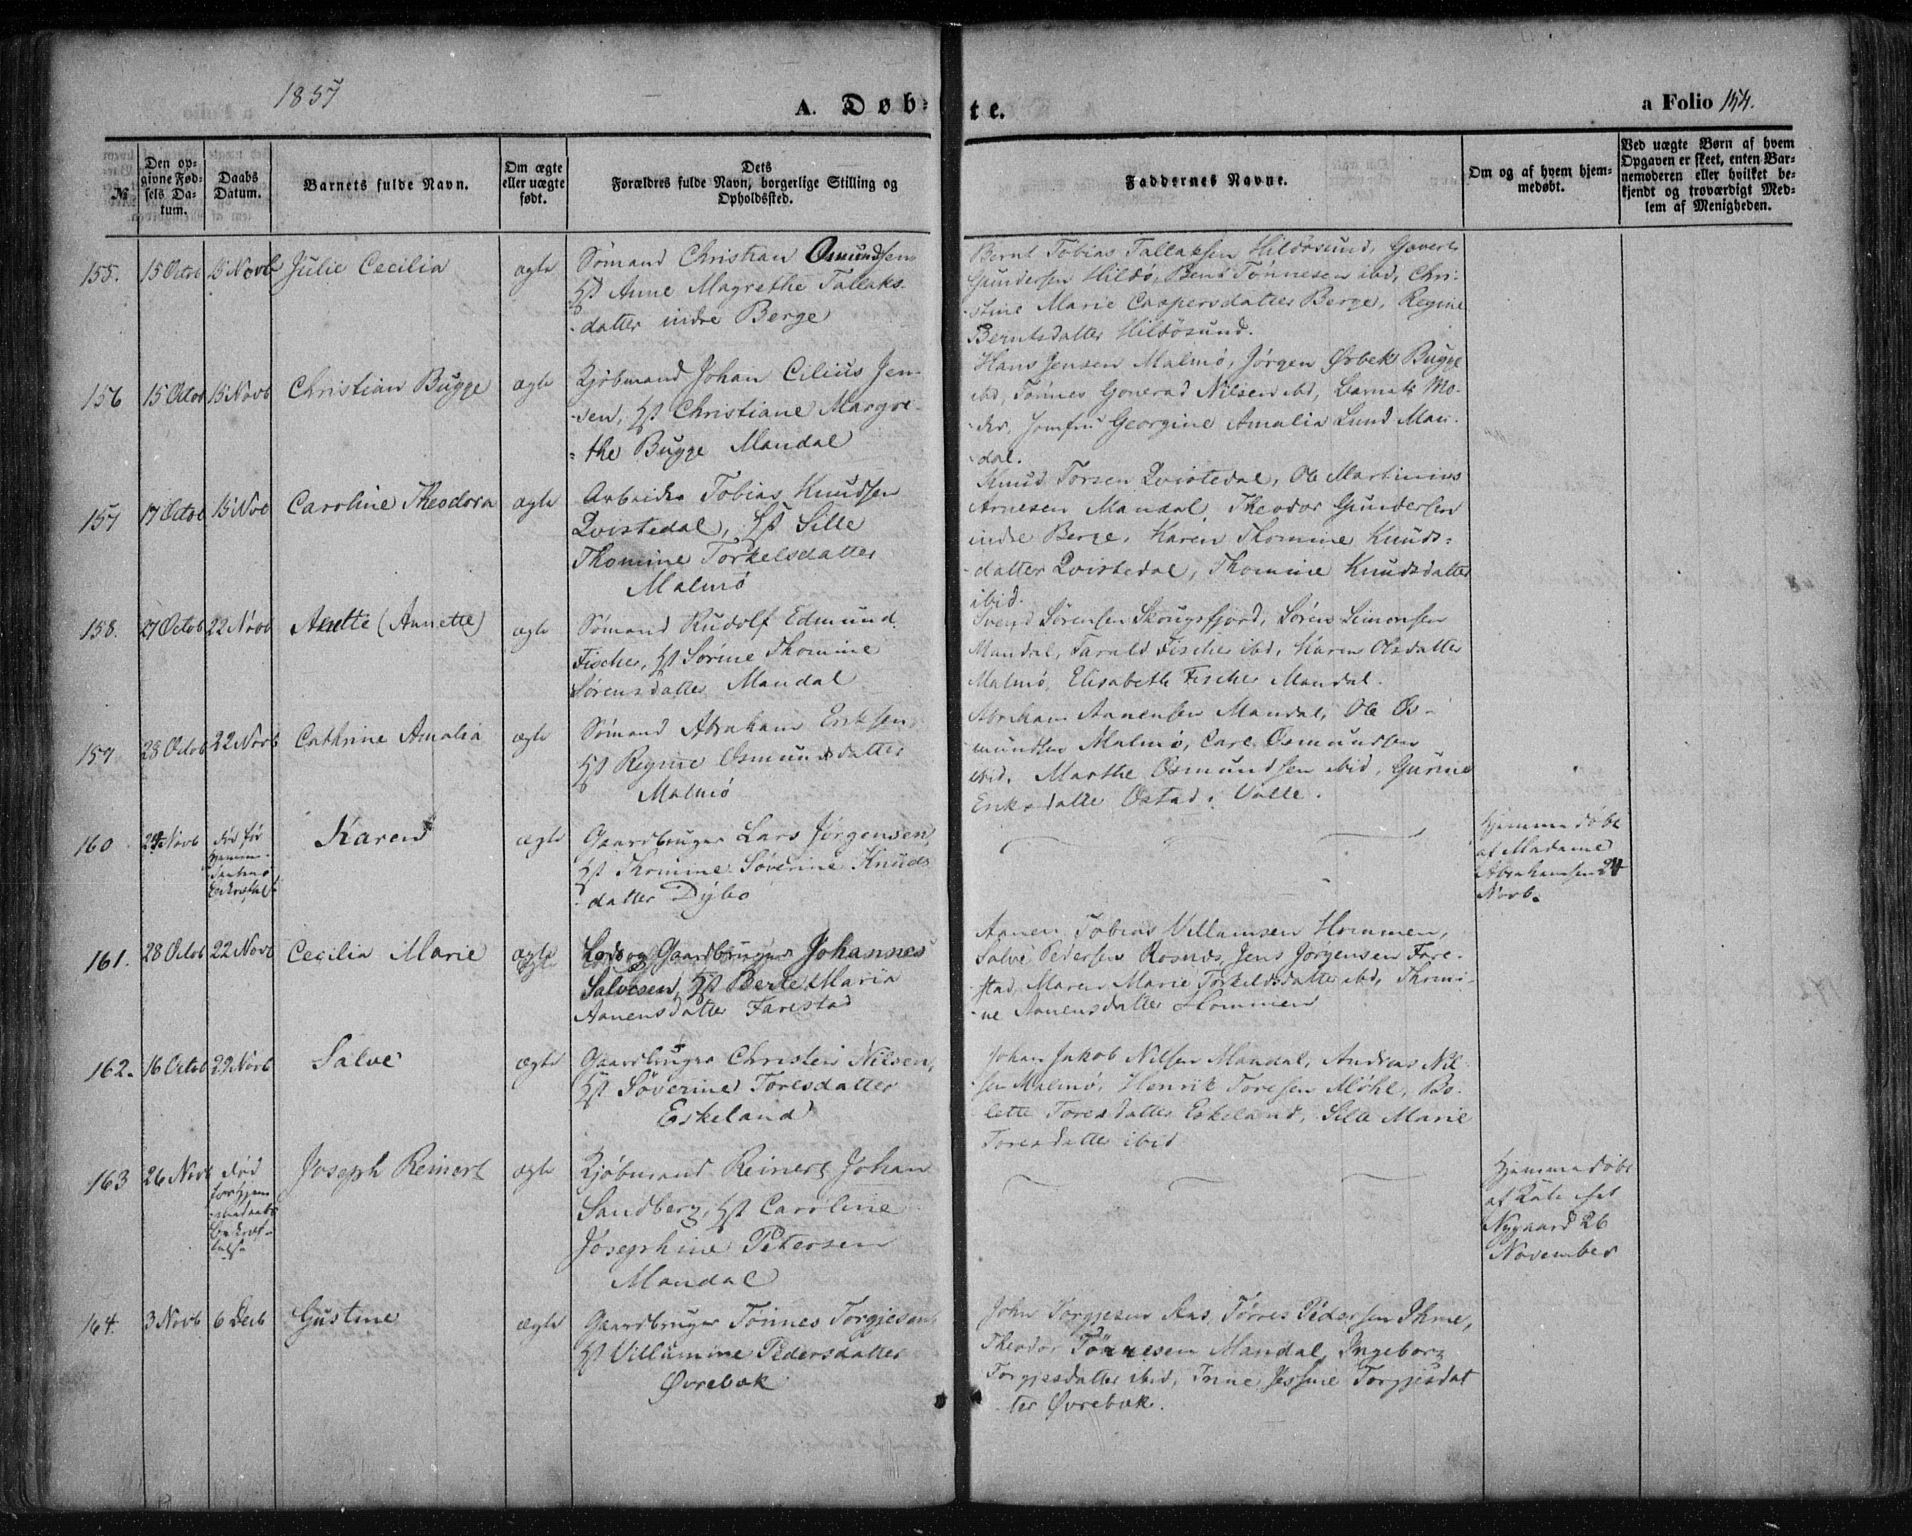 1857
A. Døbte.
a Folio 154.
№
Den opgivne Fødsels Datum.
Daabs Datum.
Barnets fulde Navn.
Om ægte eller uægte født.
Dets Forældres fulde Navn, borgerlige Stilling og Opholdssted.
Faddernes Navne.
Om og af hvem hjemmedøbt.
Ved uægte Børn af hvem Opgaven er skeet, enten Barnemoderen eller hvilket bekjendt og troværdigt Medlem af Menigheden.
155. 15 Octob 15 Novb Julie Cecilia ægte
Sømand Christian Osmundsen
Hst Anne Magrethe Tallaks-
datter indre Berge
Bernt Tobias Tallaksen Hildøsund, Govert
Gundersen Hildø, Bend Tønnesen ibd, Chri-
stine Marie Caspersdatter Berge, Regine
Berntsdatter Hildøsund.
156 15 Octob 15 Novb Christian Bugge ægte
Kjøbmand Johan Cilius Jen-
sen, Hst Christiane Margre-
the Bugge Mandal
Hans Jensen Malmø, Jørgen Ørbek Bugge
ibd, Tønnes Nilsen ibd, Barnets Mo-
der, Jomfru Georgine Amalia Lund Man-
dal.
157 17 Octob 15 Nov Caroline Theodora ægte
Arbeider Tobias Knudsen
Qvistedal, Hst Sille
Thomine Torkelsdatter
Malmø
Knud Torsen Qvistedal, Ole Martinius
Arnesen Mandal, Theodor Gundersen
indre Berge, Karen Thomine Knuds-
datter Qvistedal, Thomine Knudsdatter
ibid.
158. 27 Octob 22 Novb (Annette) ægte
Sømand Rudolf Edmund
Fischer, Hst Sørine Thomine
Sørensdatter Mandal
Svend Sørensen Skougsfjord, Søren Simonsen
Mandal, Farald Fischer ibd, Karen Olsdatter
Malmø, Elisabeth Fischer Mandal.
159. 28 Octob 22 Novb Cathrine Amalia ægte
Sømand Abraham Eriksen,
Hst Regine Osmundsdatter
Malmø
Abraham Aanensen Mandal, Ole Os-
mundsen Malmø, Carl Osmundsen
ibid, Marthe Osmundsen ibid, Gurine
Eriksdatter Østad i Valle.
160 24 Novb død før Karen ægte
Gaardbruger Lars Jørgensen,
Hst Thomine Søverine Knuds
datter Dybo
Hjemmedøbt
af Madame
Abrahamsen 24
Novb.
161. 28 Octob 22 Novb Cecilia Marie ægte
Lods og Gaardbruger Johannes
Salvesen, Hst Berte Maria
Aanensdatter Farestad
Aanen Tobias Villumsen Hommen,
Salve Pedersen Rosnes, Jens Jørgensen Fare-
stad, Maren Marie Torkildsdatter ibd, Thomi-
ne Aanensdatter Hommen
162. 16 Octob 29 Novb Salve ægte
Gaardbruger Christen Nilsen,
Hst Søverine Toresdatter
Eskeland
Johan Jakob Nilsen Mandal, Andreas Nil-
sen Malmø, Henrik Toresen Møhl, Bo-
lette Toresdatter Eskeland, Sille Marie
Toresdatter ibid
163 26 Novb død Joseph Reinert ægte
Kjøbmand Reinert Johan
Sandberg, Hst Caroline
Josephine Petersen
Mandal
Hjemmedøbt
Nygaard 26
November
164. 3 Novb 6 Decb Gustine ægte
Gaardbruger Tønnes Torgjesen,
Hst Villumine Pedersdatter
Øvrebøk
John Torgjesen Aas, Tørres Pedersen Ihme,
Theodor Tønnesen Mandal, Ingeborg
Torgjesdatter ibid, Trine Jessine Torgjesdat
ter Øvrebøk.